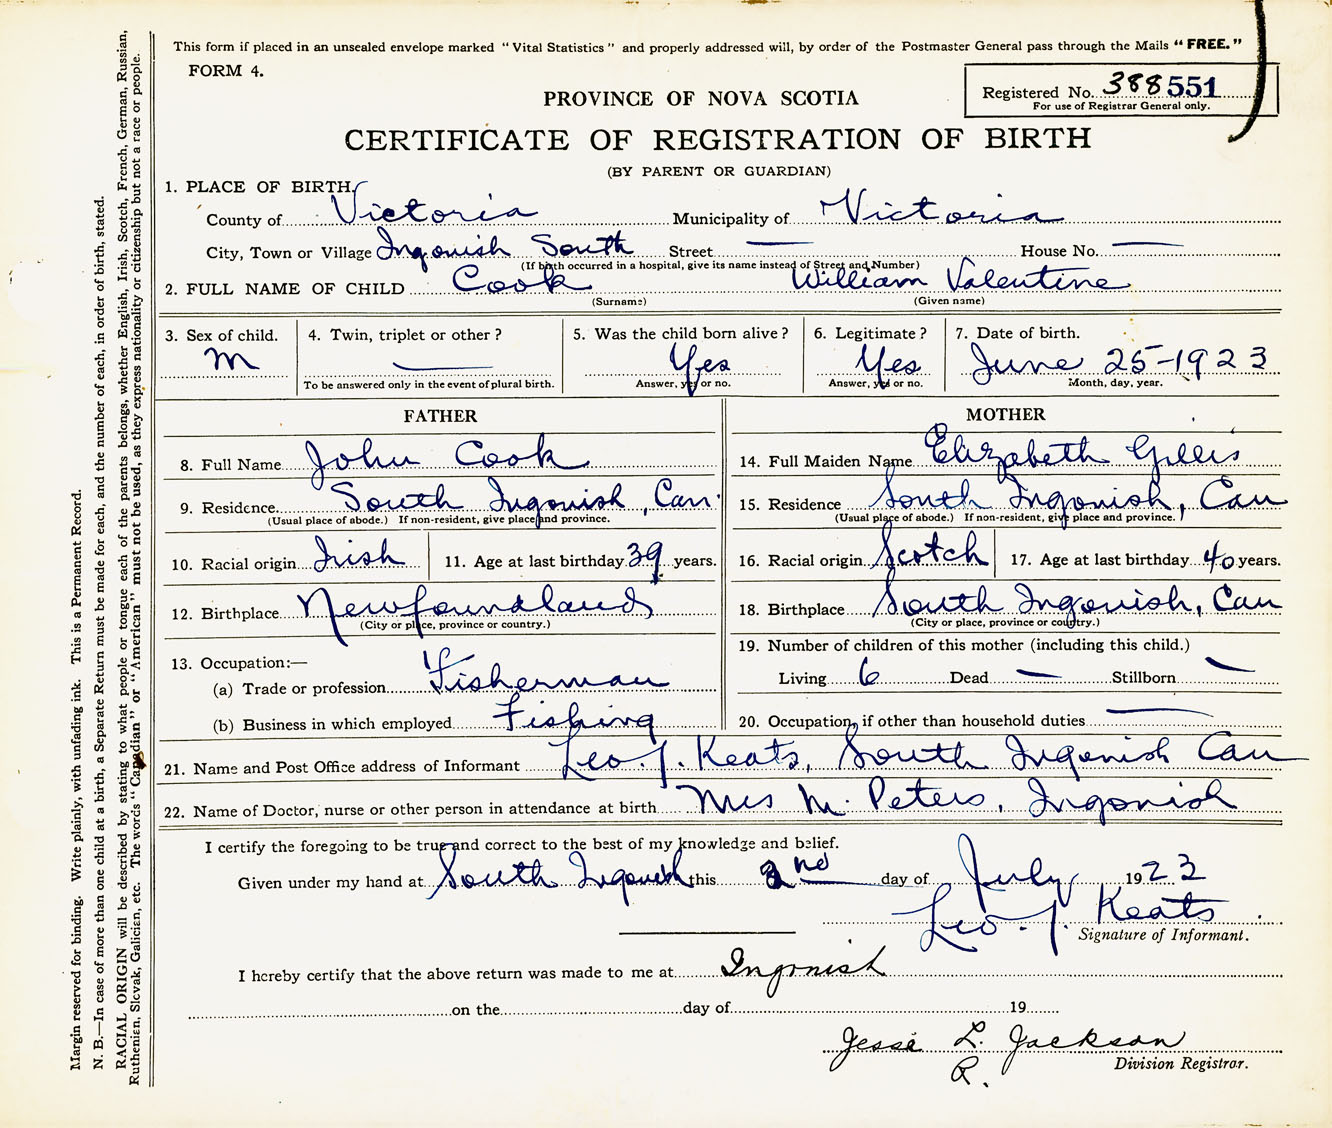 This form if placed in an unsealed envelope marked "Vital Statistics" and properly addressed will, by order of the Postmaster General pass through the Mails "FREE."
FORM 4.
Registered No. 388551
For use of Registrar General only.
PROVINCE OF NOVA SCOTIA
CERTIFICATE OF REGISTRATION OF BIRTH
(BY PARENT OR GUARDIAN)
1. PLACE OF BIRTH.
County of Victoria Municipality of Victoria
City, Town or Village Ingonish South Street — House No. —
(If birth occurred in a hospital, give its name instead of Street and Number)
2. FULL NAME OF CHILD Cook William Valentine
(Surname) (Given name)
3. Sex of child. 4. Twin, triplet or other? 5. Was the child born alive? 6. Legitimate? 7. Date of birth.
M — Yes Yes June 25-1923
To be answered only in the event of plural birth. Answer, yes or no. Answer, yes or no. Month, day, year.
FATHER
8. Full Name John Cook
9. Residence. South Ingonish, Can.
(Usual place of abode.) If non-resident, give place and province.
10. Racial origin Irish 11. Age at last birthday 39 years.
12. Birthplace Newfoundland
(City or place, province or country.)
13. Occupation:—
(a) Trade or profession Fisherman
(b) Business in which employed Fishing
MOTHER
14. Full Maiden Name Elizabeth Gillis
15. Residence South Ingonish, Can
(Usual place of abode.) If non-resident, give place and province.
16. Racial origin Scotch 17. Age at last birthday 40 years.
18. Birthplace South Ingonish, Can
(City or place, province or country.)
19. Number of children of this mother (including this child.)
Living 6 Dead — Stillborn —
20. Occupation, if other than household duties —
21. Name and Post Office address of Informant Leo J. Keats, South Ingonish Can
22. Name of Doctor, nurse or other person in attendance at birth Mrs M. Peters, Ingonish
I certify the foregoing to be true and correct to the best of my knowledge and belief.
Given under my hand at South Ingonish this 2nd day of July 1923
Leo J. Keats
Signature of Informant.
I hereby certify that the above return was made to me at Ingonish
on the day of 19
Jesse L. Jackson
Division Registrar.
R.
Margin reserved for binding. Write plainly, with unfading ink. This is a Permanent Record.
N. B.—In case of more than one child at a birth, a Separate Return must be made for each, and the number of each, in order of birth, stated.
RACIAL ORIGIN will be described by stating to what people or tongue each of the parents belongs, whether English, Irish, Scotch, French, German, Russian,
Ruthenian, Slovak, Galician, etc. The words "Canadian" or "American" must not be used, as they express nationality or citizenship but not a race or people.